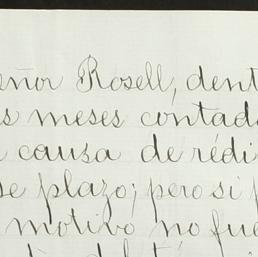 eñor Rosell, dent
s meses contad
causa de rédi
se plazo; pero si p
motivo no fue